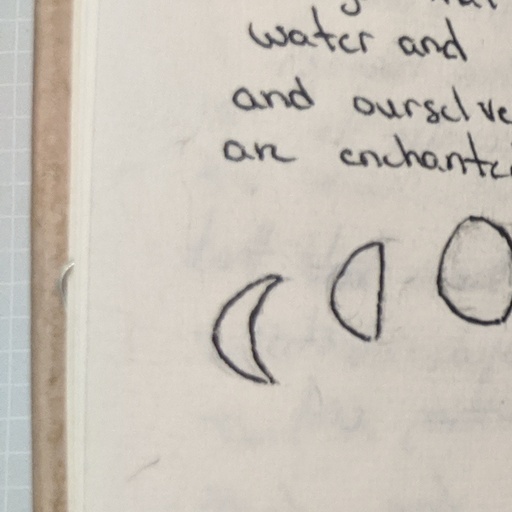 water and
and ourselve
are enchante